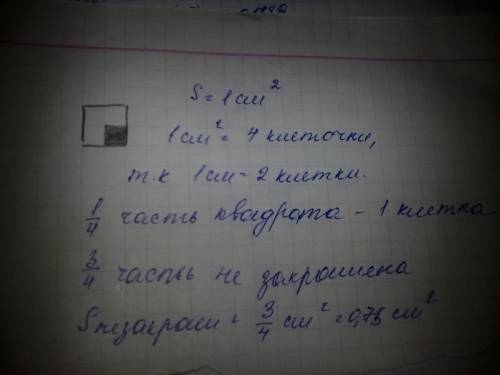 S = 1 см²
1 см² = 4 клеточки,
т.к 1см - 2 клетки.
1/4 часть квадрата - 1 клетка
3/4 часть не закрашена
Sнезакраш = 3/4 см² = 0,75 см²